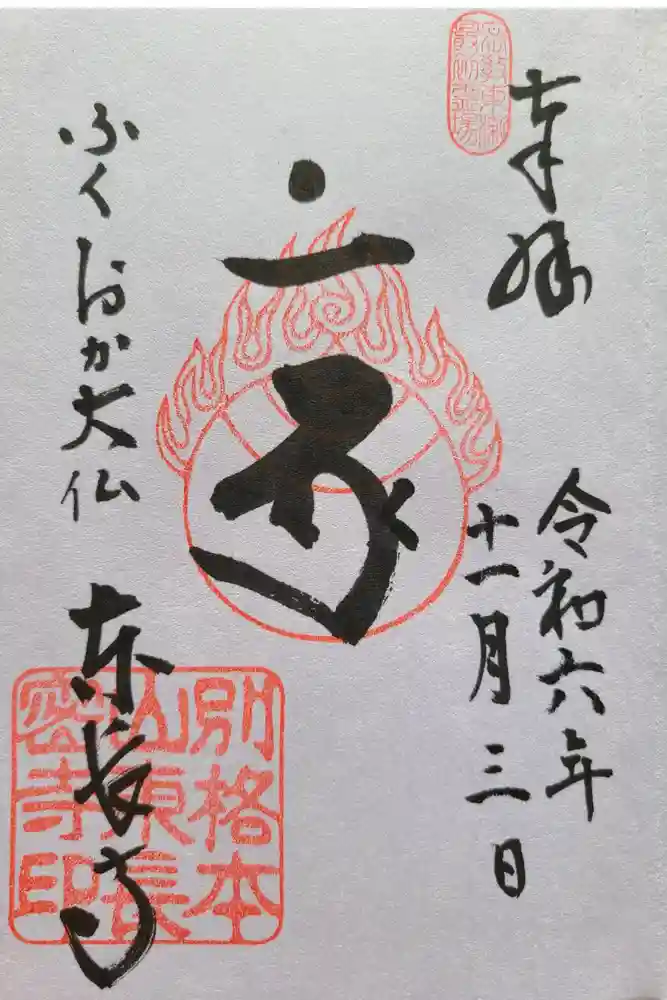 奉拝
令和六年
十一月三日
ふくおか大仏
東長寺
別格本
山東長
密寺印